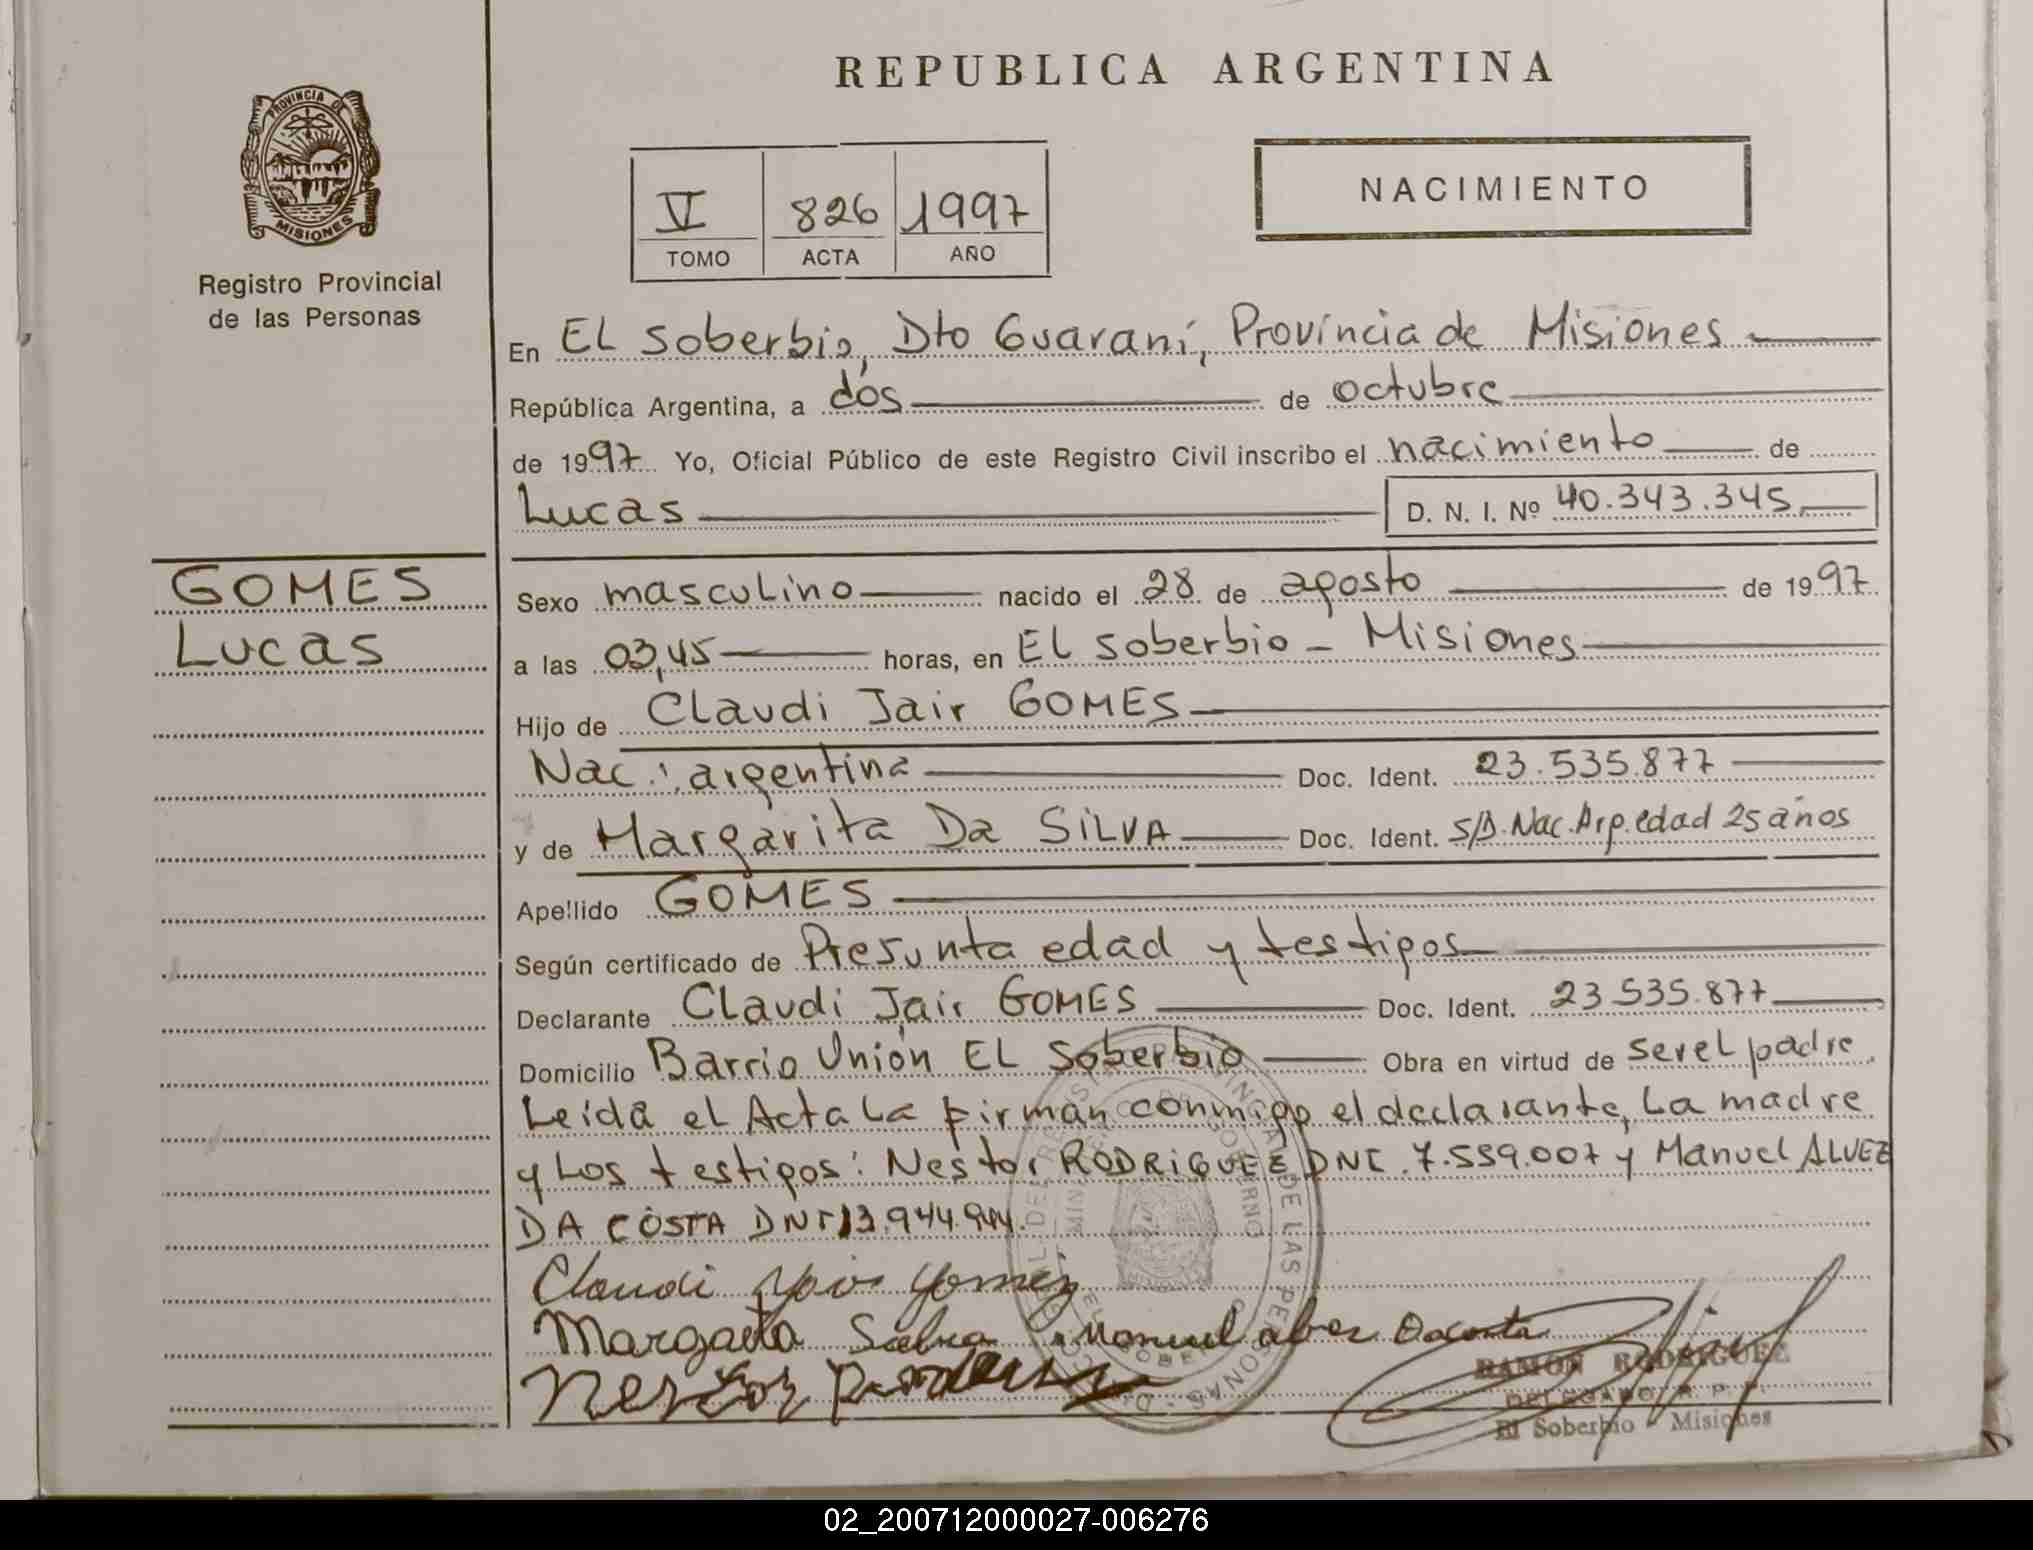 REPUBLICA ARGENTINA
PROVINCIA DE
MISIONES
Registro Provincial
de las Personas
V 826 1997
TOMO ACTA AÑO
NACIMIENTO
En EL Soberbio, Dto Guaraní, Provincia de Misiones
República Argentina, a dos de octubre
de 1997 Yo, Oficial Público de este Registro Civil inscribo el nacimiento de
Lucas D. N. I. Nº 40.343.345
GOMES
Lucas
Sexo masculino nacido el 28 de agosto de 1997
a las 03,45 horas, en EL Soberbio - Misiones
Hijo de Claudi Jair GOMES
Nac.: argentina Doc. Ident. 23.535.877
y de Margarita Da SILVA Doc. Ident. S/D. Nac. Arg. edad 25 años
Apellido GOMES
Según certificado de Presunta edad y testigos
Declarante Claudi Jair GOMES Doc. Ident. 23.535.877
Domicilio Barrio Unión EL Soberbio Obra en virtud de ser el padre.
Leída el Acta La firman conmigo el declarante, La madre
y Los testigos: Nestor RODRIGUEZ DNI. 7.559.007 y Manuel ALVEZ
DA COSTA DNI 13.944.944.
Claudi Gomez
Margarita Manuel Dacosta
Nestor
RAMON RODRIGUEZ
DELEGADO R. P. P.
El Soberbio - Misiones
02_200712000027-006276